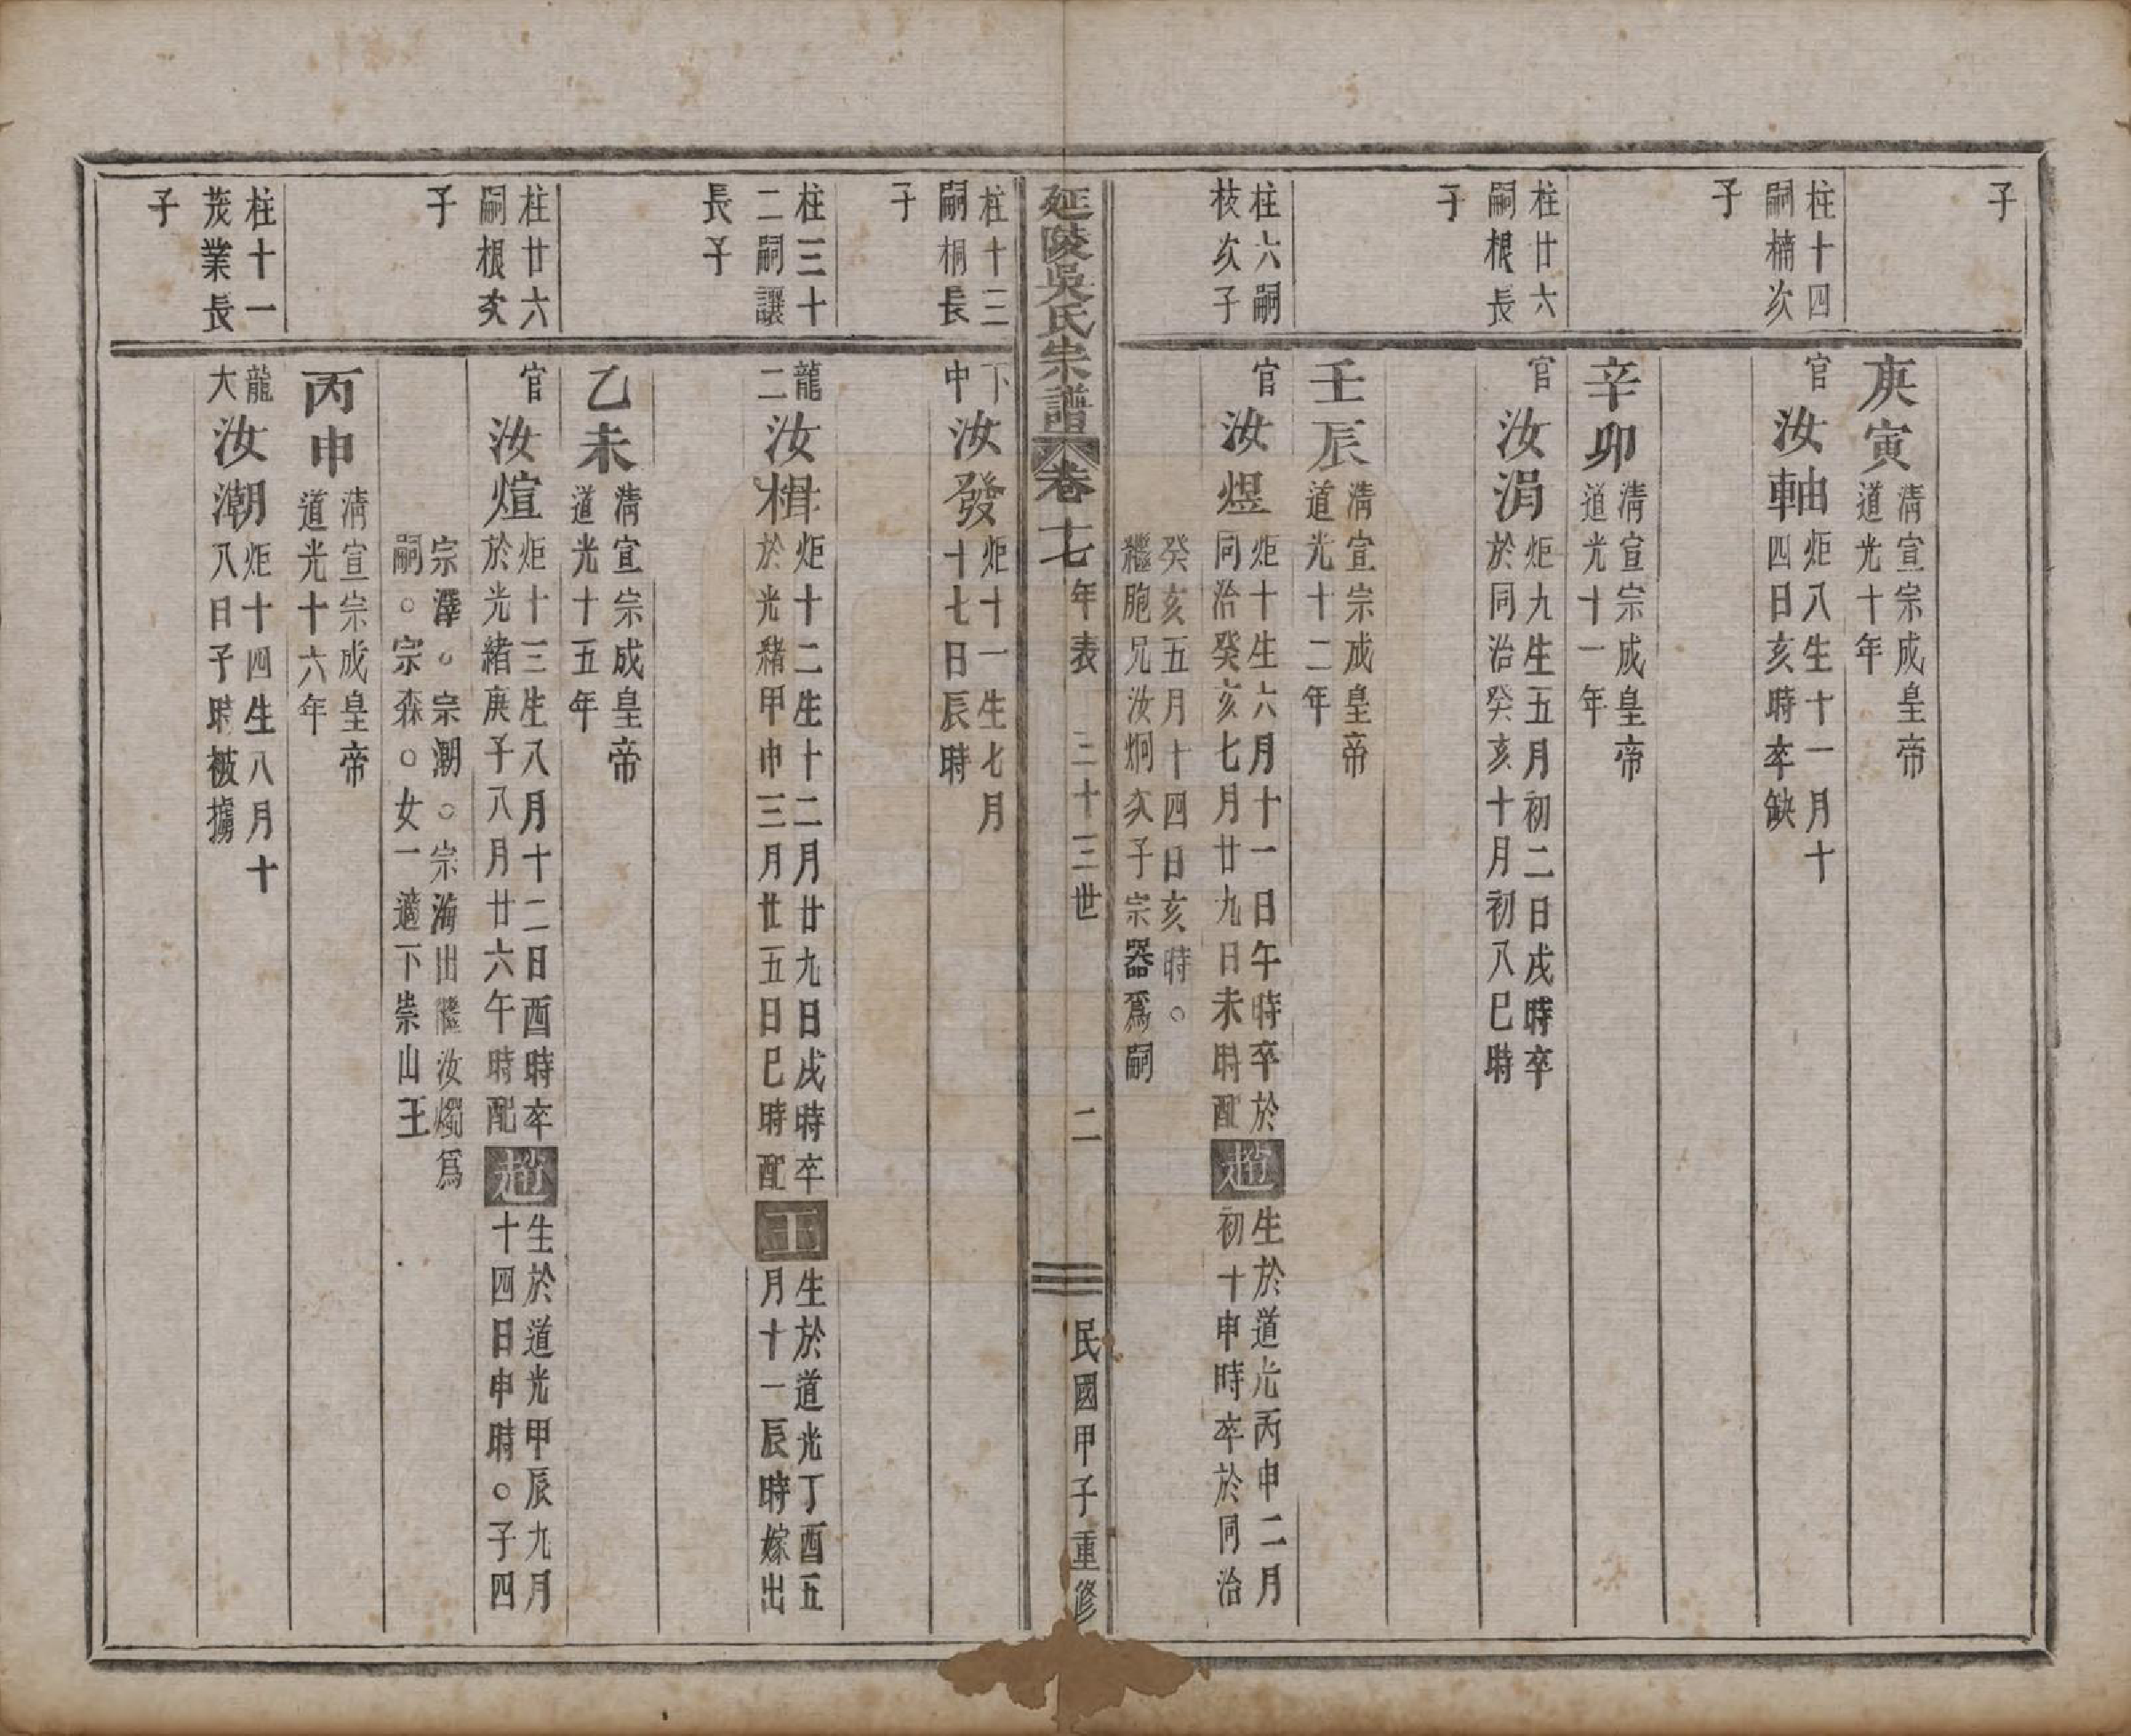 子
庚寅
清宣宗成皇帝
道光十年
柱十四
嗣楠次
子
官
汝軸
炬八生十一月十
四日亥時卒缺
辛卯
清宣宗成皇帝
道光十一年
柱廿六
嗣根長
子
官
汝涓
炬九生五月初二日戌時卒
於同治癸亥十月初八巳時
壬辰
清宣宗成皇帝
道光十二年
柱六嗣
枝次子
官
汝煜
炬十生六月十一日午時卒於
同治癸亥七月廿九日未時配
趙
生於道光丙申二月
初十申時卒於同治
癸亥五月十四日亥時。
繼胞兄汝炯次子宗器爲嗣
延陵吳氏宗譜
卷十七
年表
三十三世
二
民國甲子重修
柱十三
嗣桐長
子
下
中
汝發
炬十一生七月
十七日辰時
柱三十
二嗣讓
長子
龍
二
汝楫
炬十二生十二月廿九日戌時卒
於光緒甲申三月廿五日巳時配
王
生於道光丁酉五
月十一辰時嫁出
乙未
清宣宗成皇帝
道光十五年
柱廿六
嗣根次
子
官
汝煊
炬十三生八月十二日酉時卒
於光緒庚子八月廿六午時配
趙
生於道光甲辰九月
十四日申時。子四
宗澤。宗潮。宗海出繼汝燭爲
嗣。宗森。女一適下崇山王
丙申
清宣宗成皇帝
道光十六年
柱十一
茂業長
子
龍
大
汝潮
炬十四生八月十
八日子時被擄